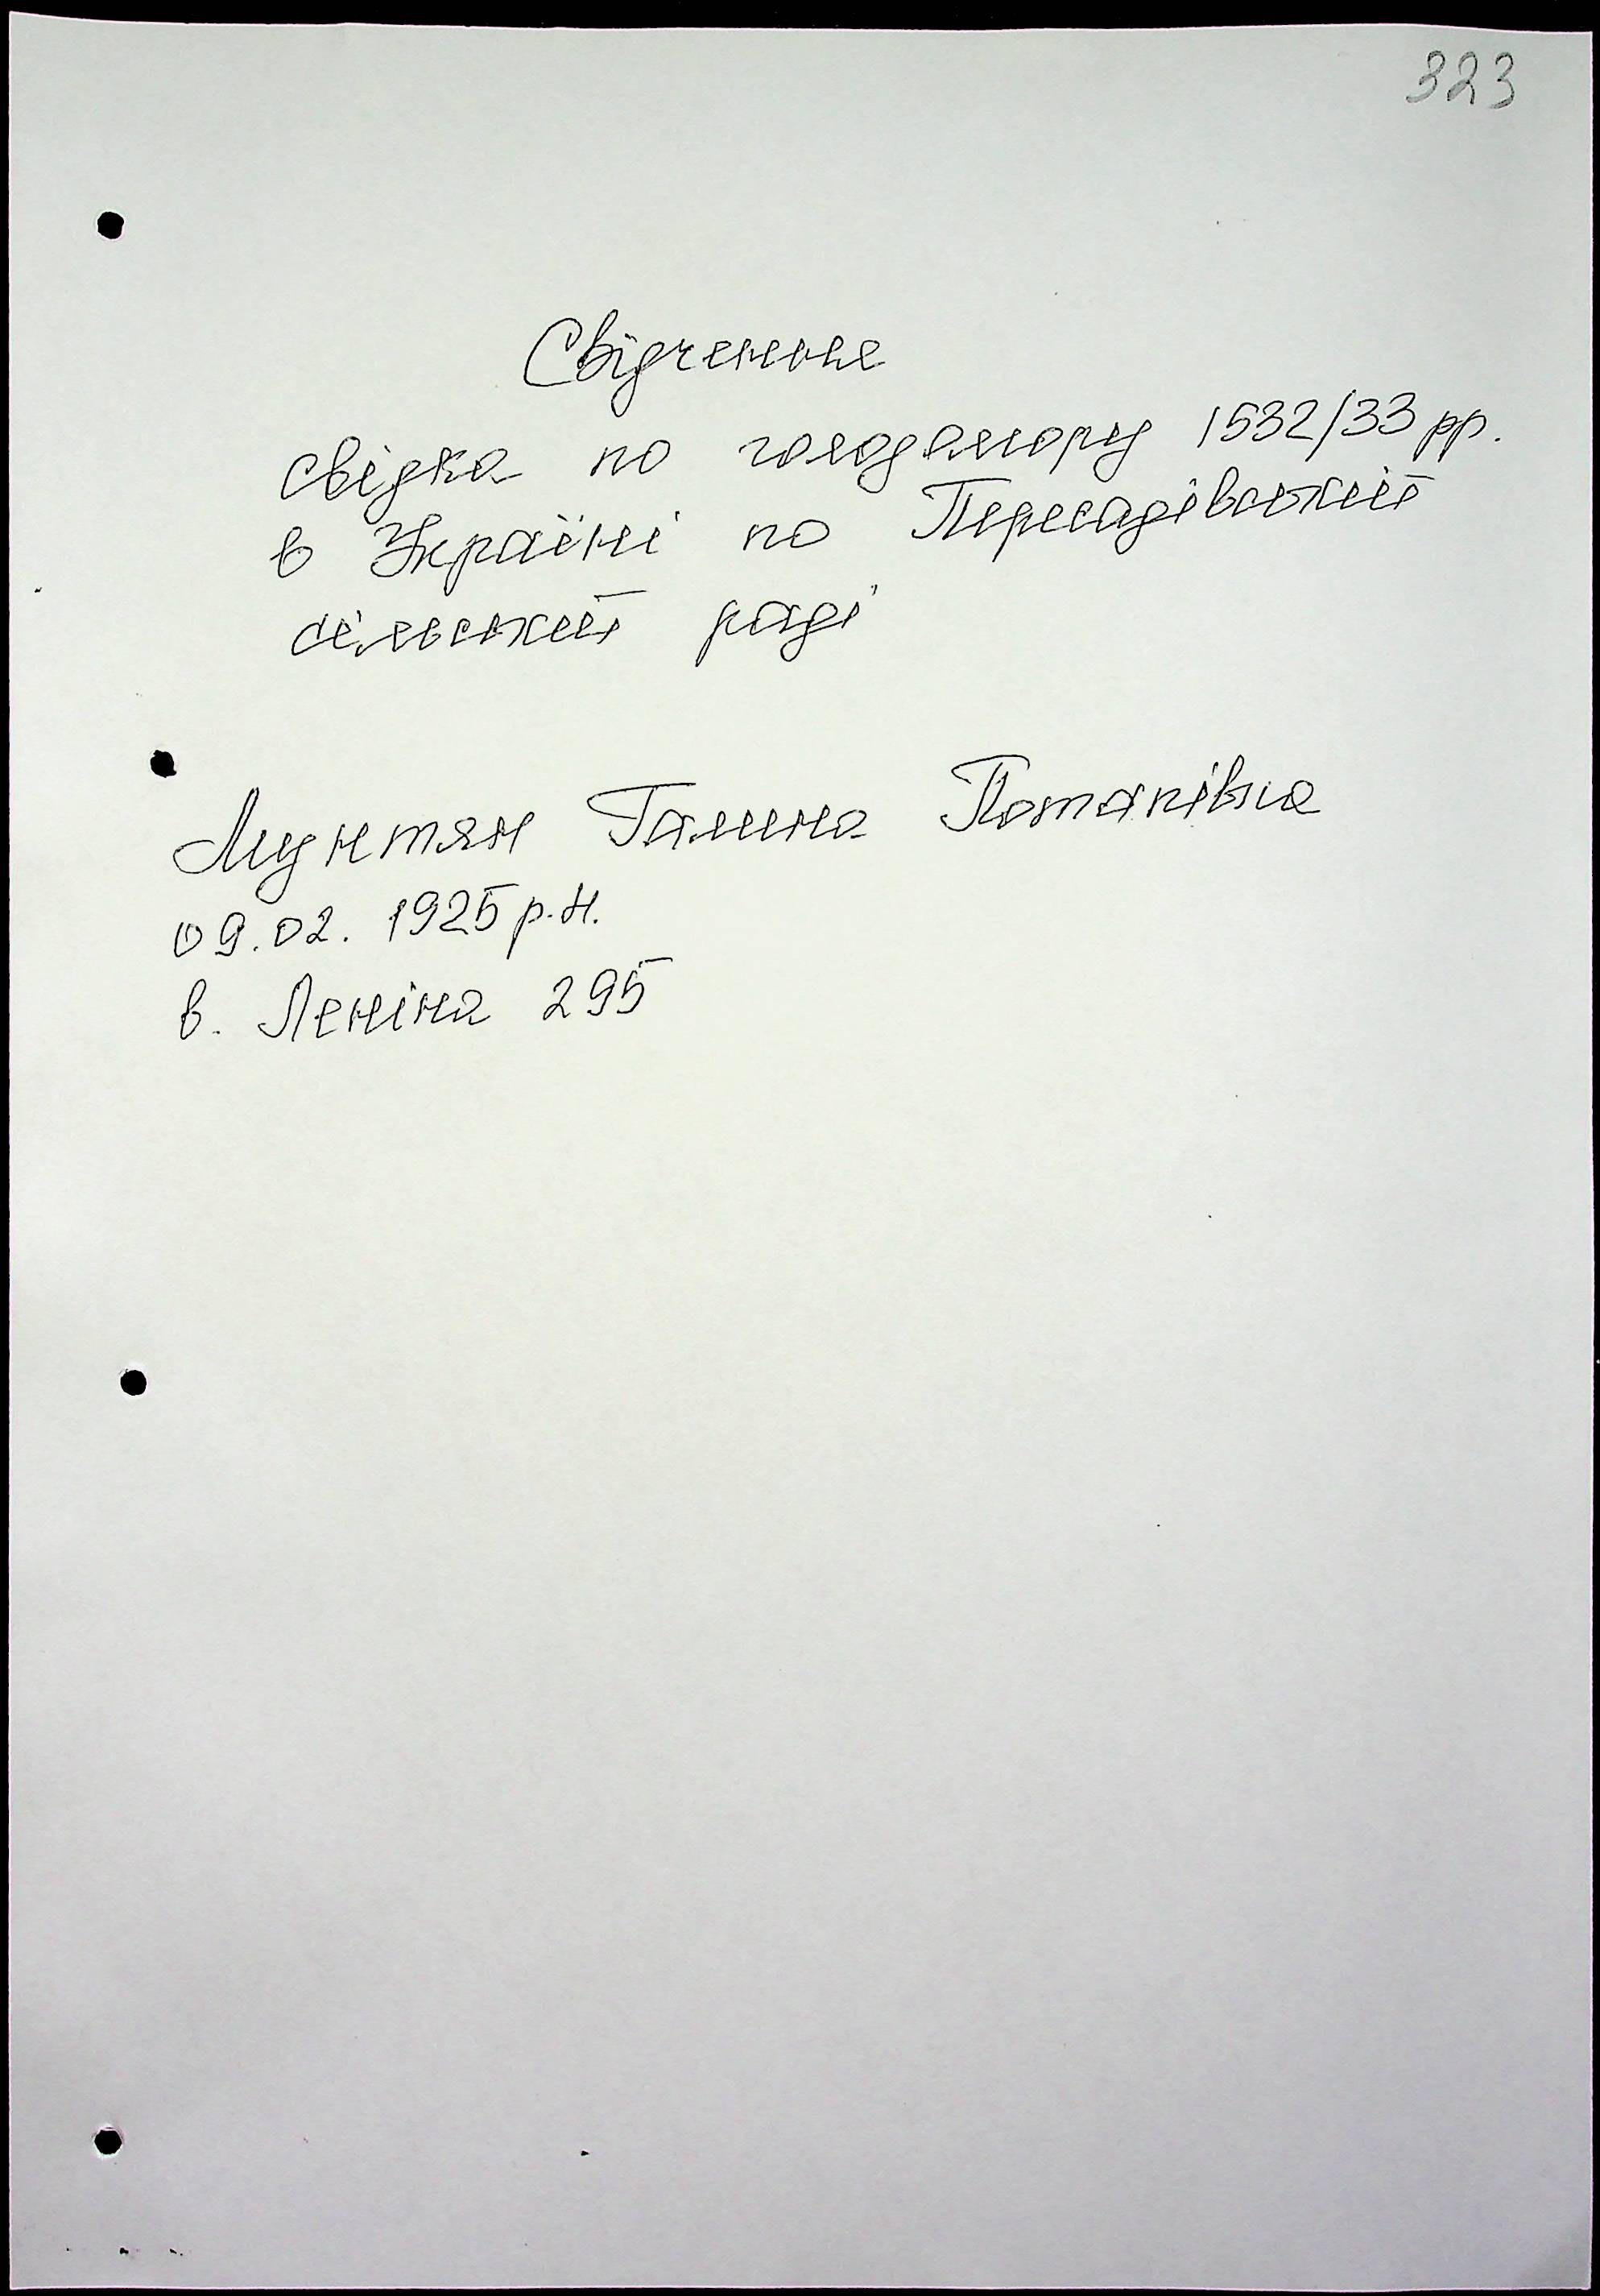 323
Свідчення
свідка по голодамору 1532/33 рр.
в Україні по Пересадівській
сільській раді
Мунтян Галина Потапівна
09.02. 1925 р.н.
в. Леніна 295